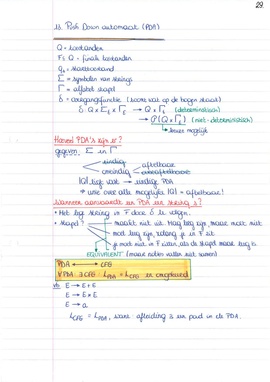 29
13 Push Down automaat (PDA)
Q = toestanden
F ⊆ Q = finale toestanden
q₀ = starttoestand
Σ = symbolen van strings
Γ = alfabet stapel
δ = overgangsfunctie (soort van op de bogen staat)
δ Q × Σε × Γε → Q × Γε (deterministisch)
→ P(Q × Γε) (niet-deterministisch)
keuzes mogelijk
Hoeveel PDA's zijn er?
gegeven Σ en Γ
eindig aftelbaar
oneindig
|Q| ligt vast → eindige PDA
→ unie over alle mogelijke |Q| = aftelbaar!
Wanneer aanvaardt een PDA een string s?
• Het lege string in F door δ te volgen.
• stapel? maakt niet uit. Mag leeg zijn, maar moet niet
moet leeg zijn, zolang je in F zit
je moet niet in F zitten, als de stapel maar leeg is
EQUIVALENT (maar noten vallen niet samen)
PDA ↔ CFG
∀ PDA ∃ CFG L_PDA = L_CFG en omgekeerd
vb. E → E + E
E → E × E
E → a
L_CFG = L_PDA, want afleiding is een pad in de PDA.